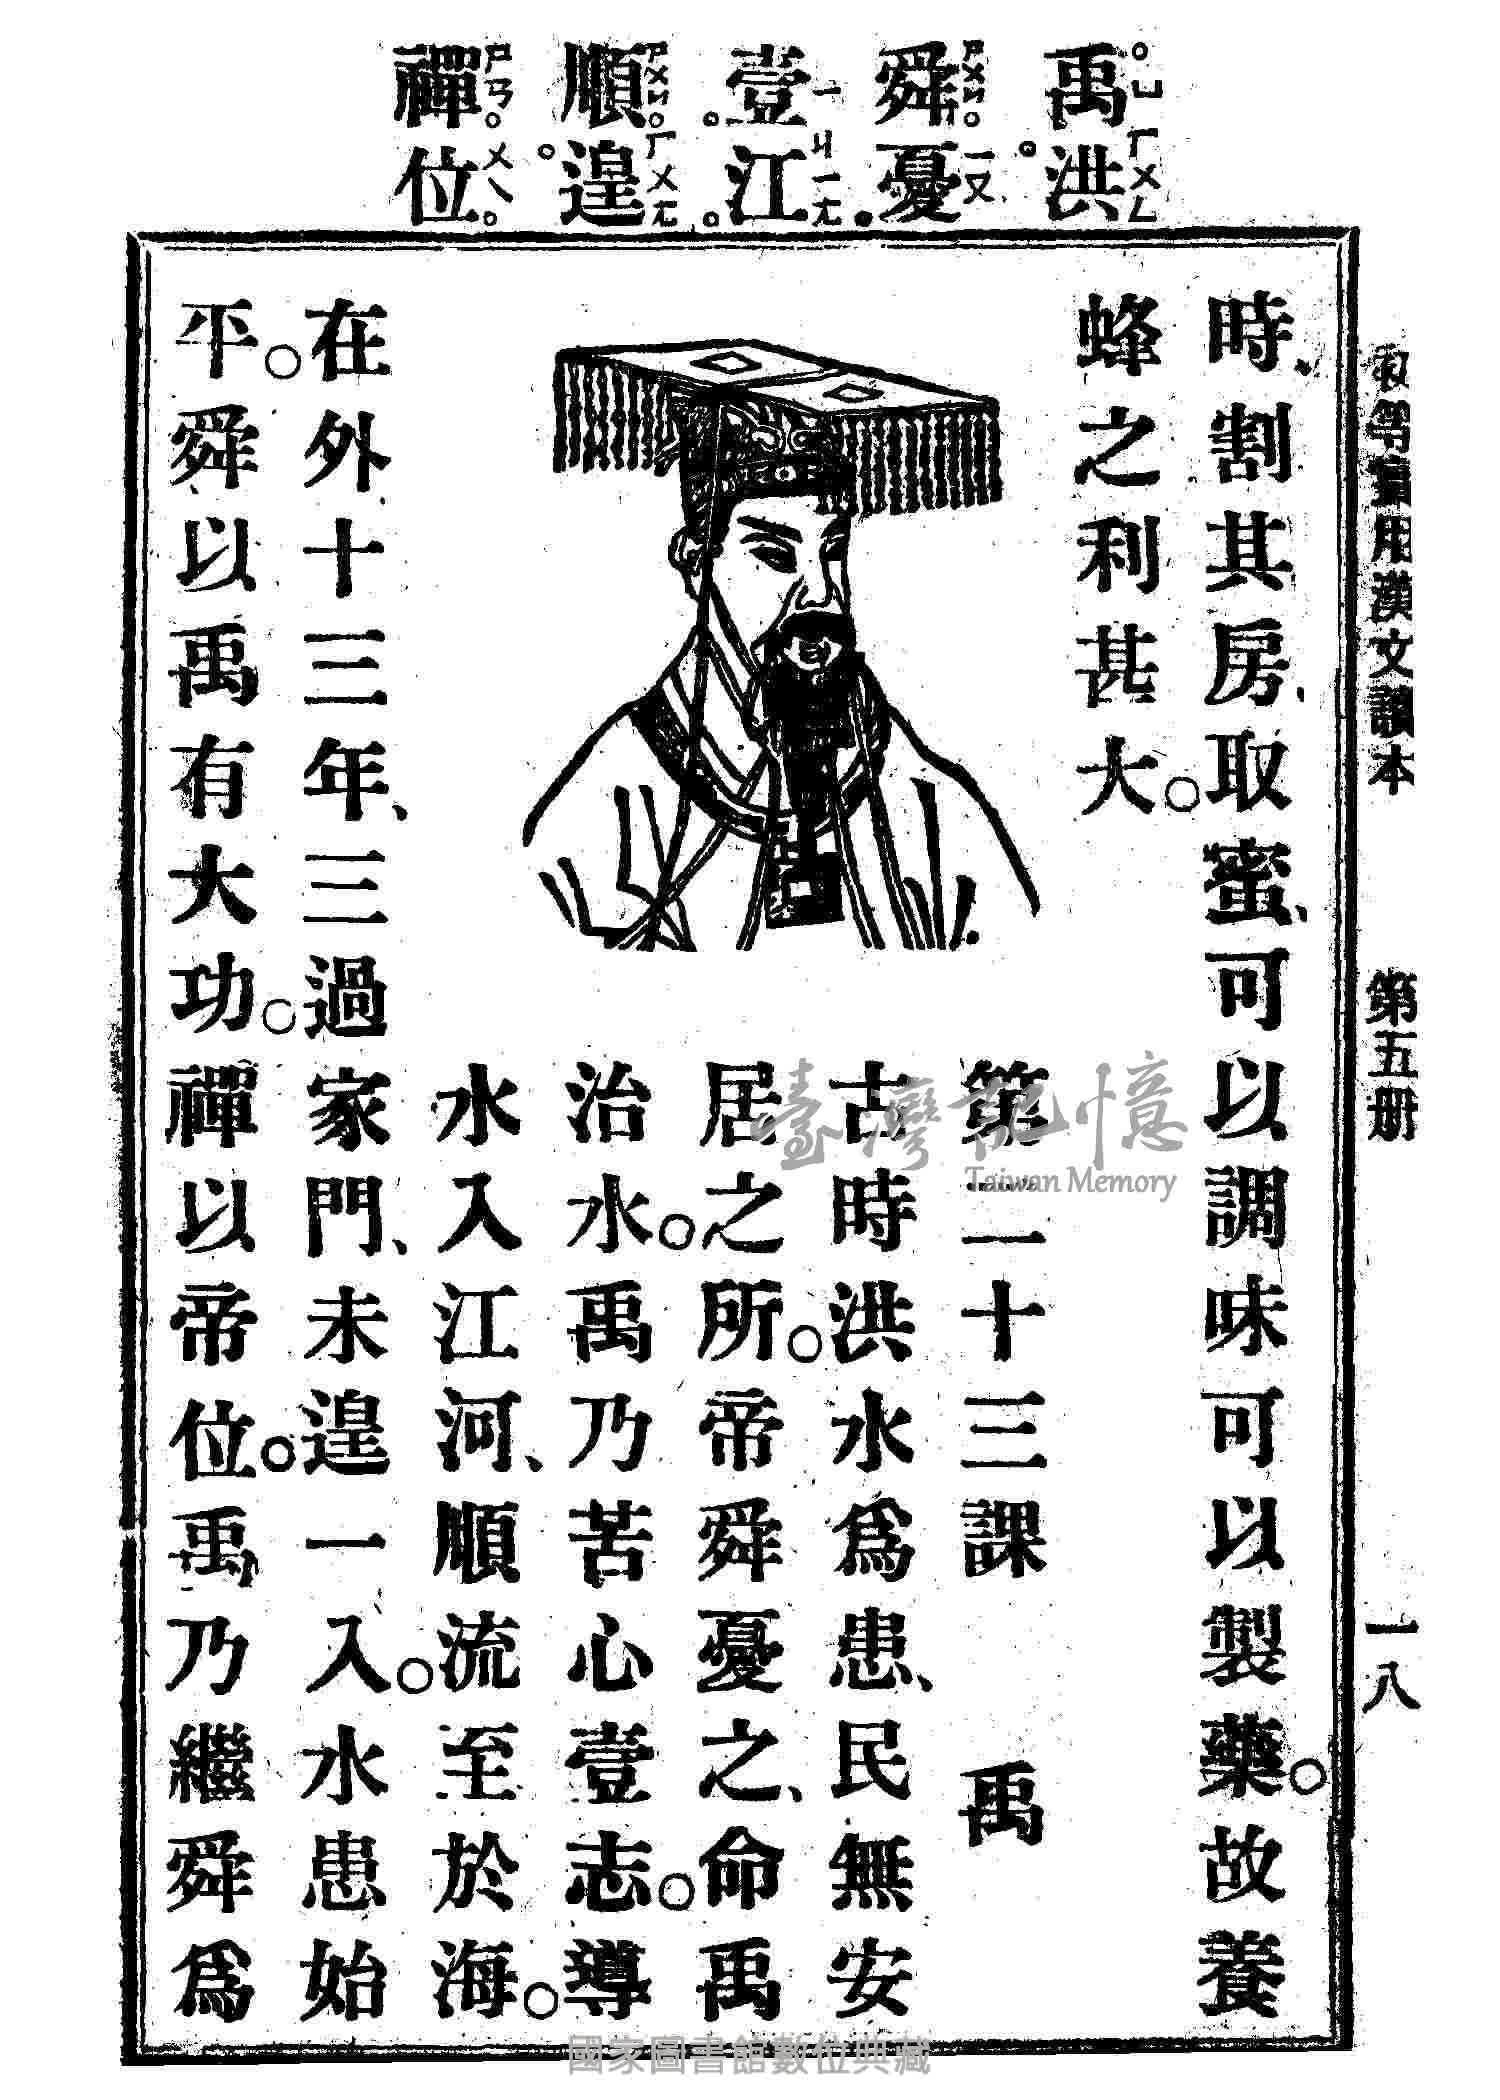 禹ㄩ 洪ㄏㄨㄥ
舜ㄕㄨㄣ 憂ㄧㄡ
壹ㄧ 江ㄐㄧㄤ
順ㄕㄨㄣ 遑ㄏㄨㄤ
禪ㄕㄢ 位ㄨㄟ
初等實用漢文讀本 第五册 一八
時、割其房、取蜜、可以調味可以製藥。故養
蜂之利甚大。
第二十三課 禹
古時洪水爲患、民無安
居之所。帝舜憂之、命禹
治水。禹乃苦心壹志。導
水入江河、順流至於海。
在外十三年、三過家門、未遑一入。水患始
平。舜以禹有大功。禪以帝位。禹乃繼舜爲
臺灣記憶
Taiwan Memory
國家圖書館數位典藏